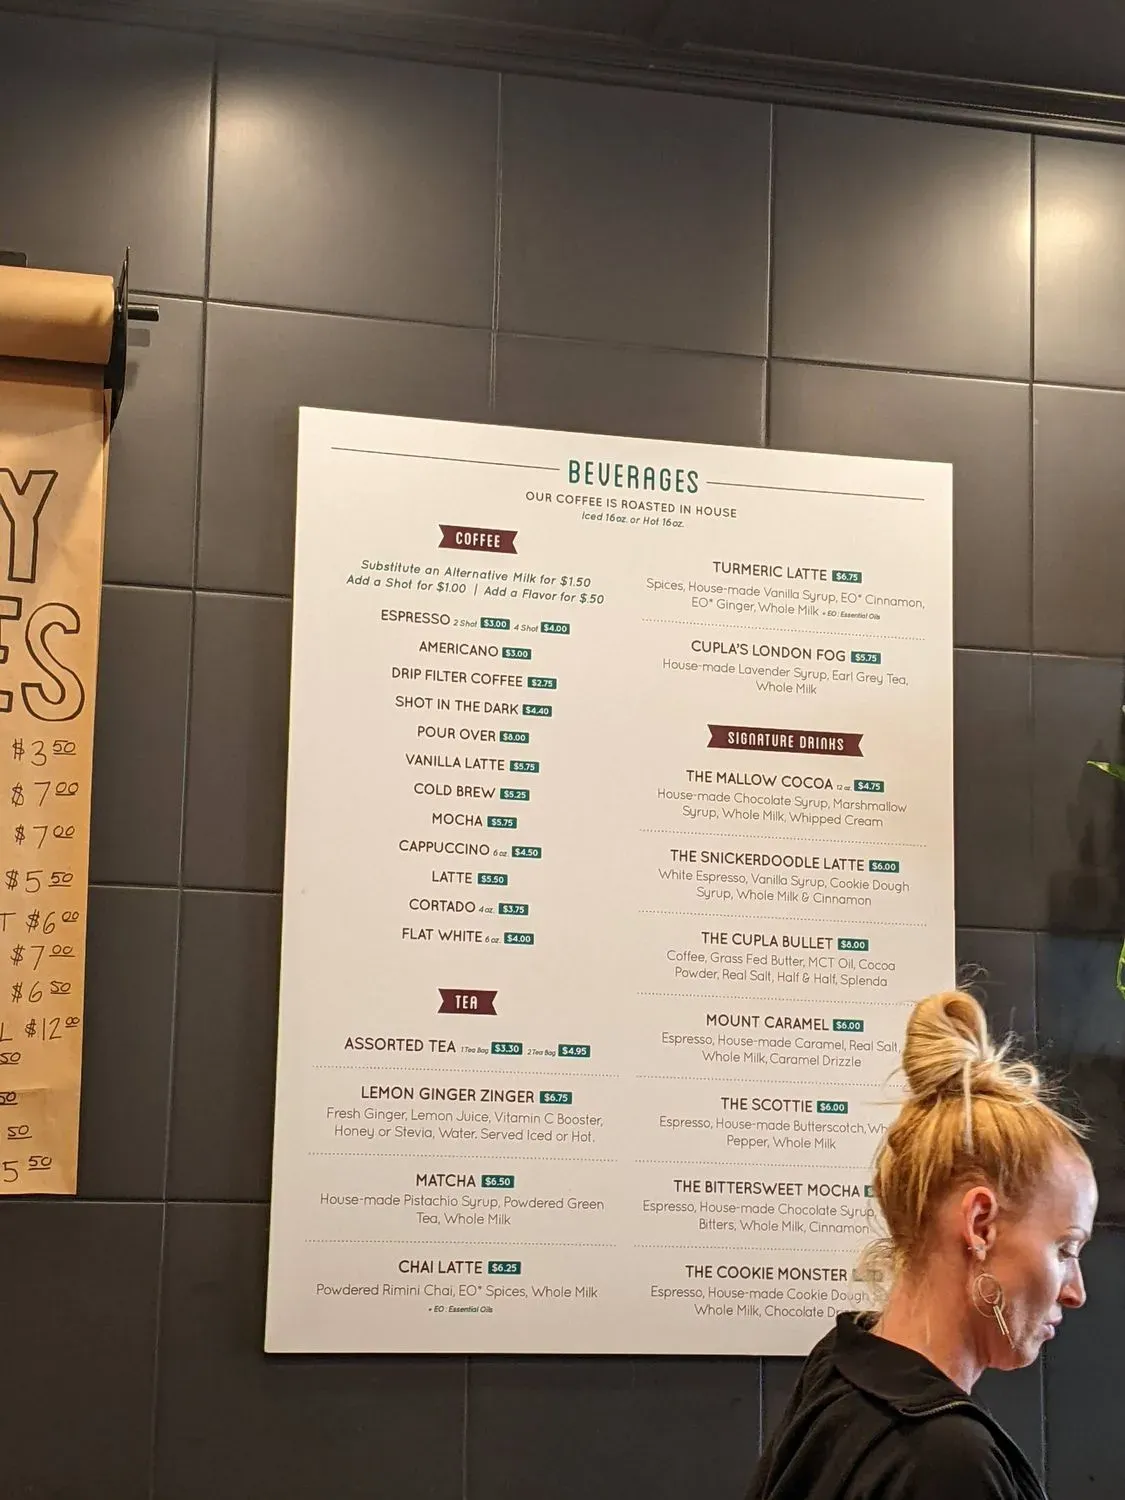 Y
ES
$3 50
$7 00
$7 00
$5 50
T $6 00
$7 00
$6 50
L $12 00
50
50
50
5 50
BEVERAGES
OUR COFFEE IS ROASTED IN HOUSE
Iced 16oz. or Hot 16oz.
COFFEE
Substitute an Alternative Milk for $1.50
Add a Shot for $1.00 | Add a Flavor for $.50
ESPRESSO 2 Shot $3.00 4 Shot $4.00
AMERICANO $3.00
DRIP FILTER COFFEE $2.75
SHOT IN THE DARK $4.40
POUR OVER $6.00
VANILLA LATTE $5.75
COLD BREW $5.25
MOCHA $5.75
CAPPUCCINO 6 oz. $4.50
LATTE $5.50
CORTADO 4 oz. $3.75
FLAT WHITE 6 oz. $4.00
TEA
ASSORTED TEA 1 Tea Bag $3.30 2 Tea Bag $4.95
LEMON GINGER ZINGER $6.75
Fresh Ginger, Lemon Juice, Vitamin C Booster,
Honey or Stevia, Water. Served Iced or Hot.
MATCHA $6.50
House-made Pistachio Syrup, Powdered Green
Tea, Whole Milk
CHAI LATTE $6.25
Powdered Rimini Chai, EO* Spices, Whole Milk
* EO : Essential Oils
TURMERIC LATTE $6.75
Spices, House-made Vanilla Syrup, EO* Cinnamon,
EO* Ginger, Whole Milk * EO : Essential Oils
CUPLA'S LONDON FOG $5.75
House-made Lavender Syrup, Earl Grey Tea,
Whole Milk
SIGNATURE DRINKS
THE MALLOW COCOA 12 oz. $4.75
House-made Chocolate Syrup, Marshmallow
Syrup, Whole Milk, Whipped Cream
THE SNICKERDOODLE LATTE $6.00
White Espresso, Vanilla Syrup, Cookie Dough
Syrup, Whole Milk & Cinnamon
THE CUPLA BULLET $8.00
Coffee, Grass Fed Butter, MCT Oil, Cocoa
Powder, Real Salt, Half & Half, Splenda
MOUNT CARAMEL $6.00
Espresso, House-made Caramel, Real Salt,
Whole Milk, Caramel Drizzle
THE SCOTTIE $6.00
Espresso, House-made Butterscotch, Wh
Pepper, Whole Milk
THE BITTERSWEET MOCHA
Espresso, House-made Chocolate Syrup,
Bitters, Whole Milk, Cinnamon
THE COOKIE MONSTER
Espresso, House-made Cookie Dough
Whole Milk, Chocolate